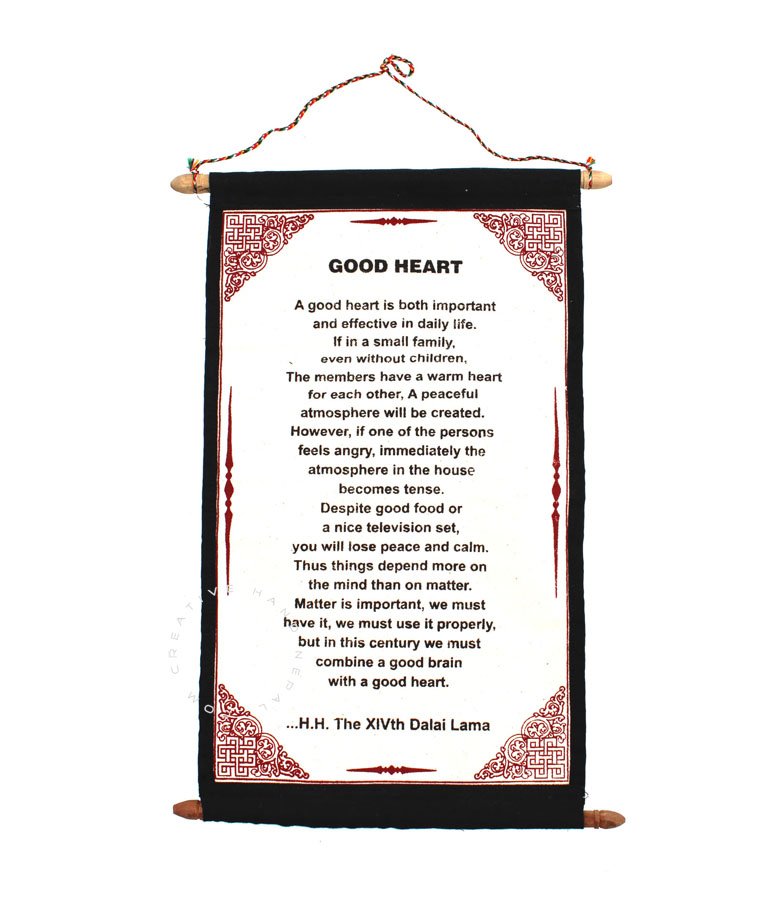 GOOD HEART
A good heart is both important
and effective in daily life.
If in a small family,
even without children,
The members have a warm heart
for each other, A peaceful
atmosphere will be created.
However, if one of the persons
feels angry, immediately the
atmosphere in the house
becomes tense.
Despite good food or
a nice television set,
you will lose peace and calm.
Thus things depend more on
the mind than on matter.
Matter is important, we must
have it, we must use it properly,
but in this century we must
combine a good brain
with a good heart.
...H.H. The XIVth Dalai Lama
CREATIVE HAND NEPAL